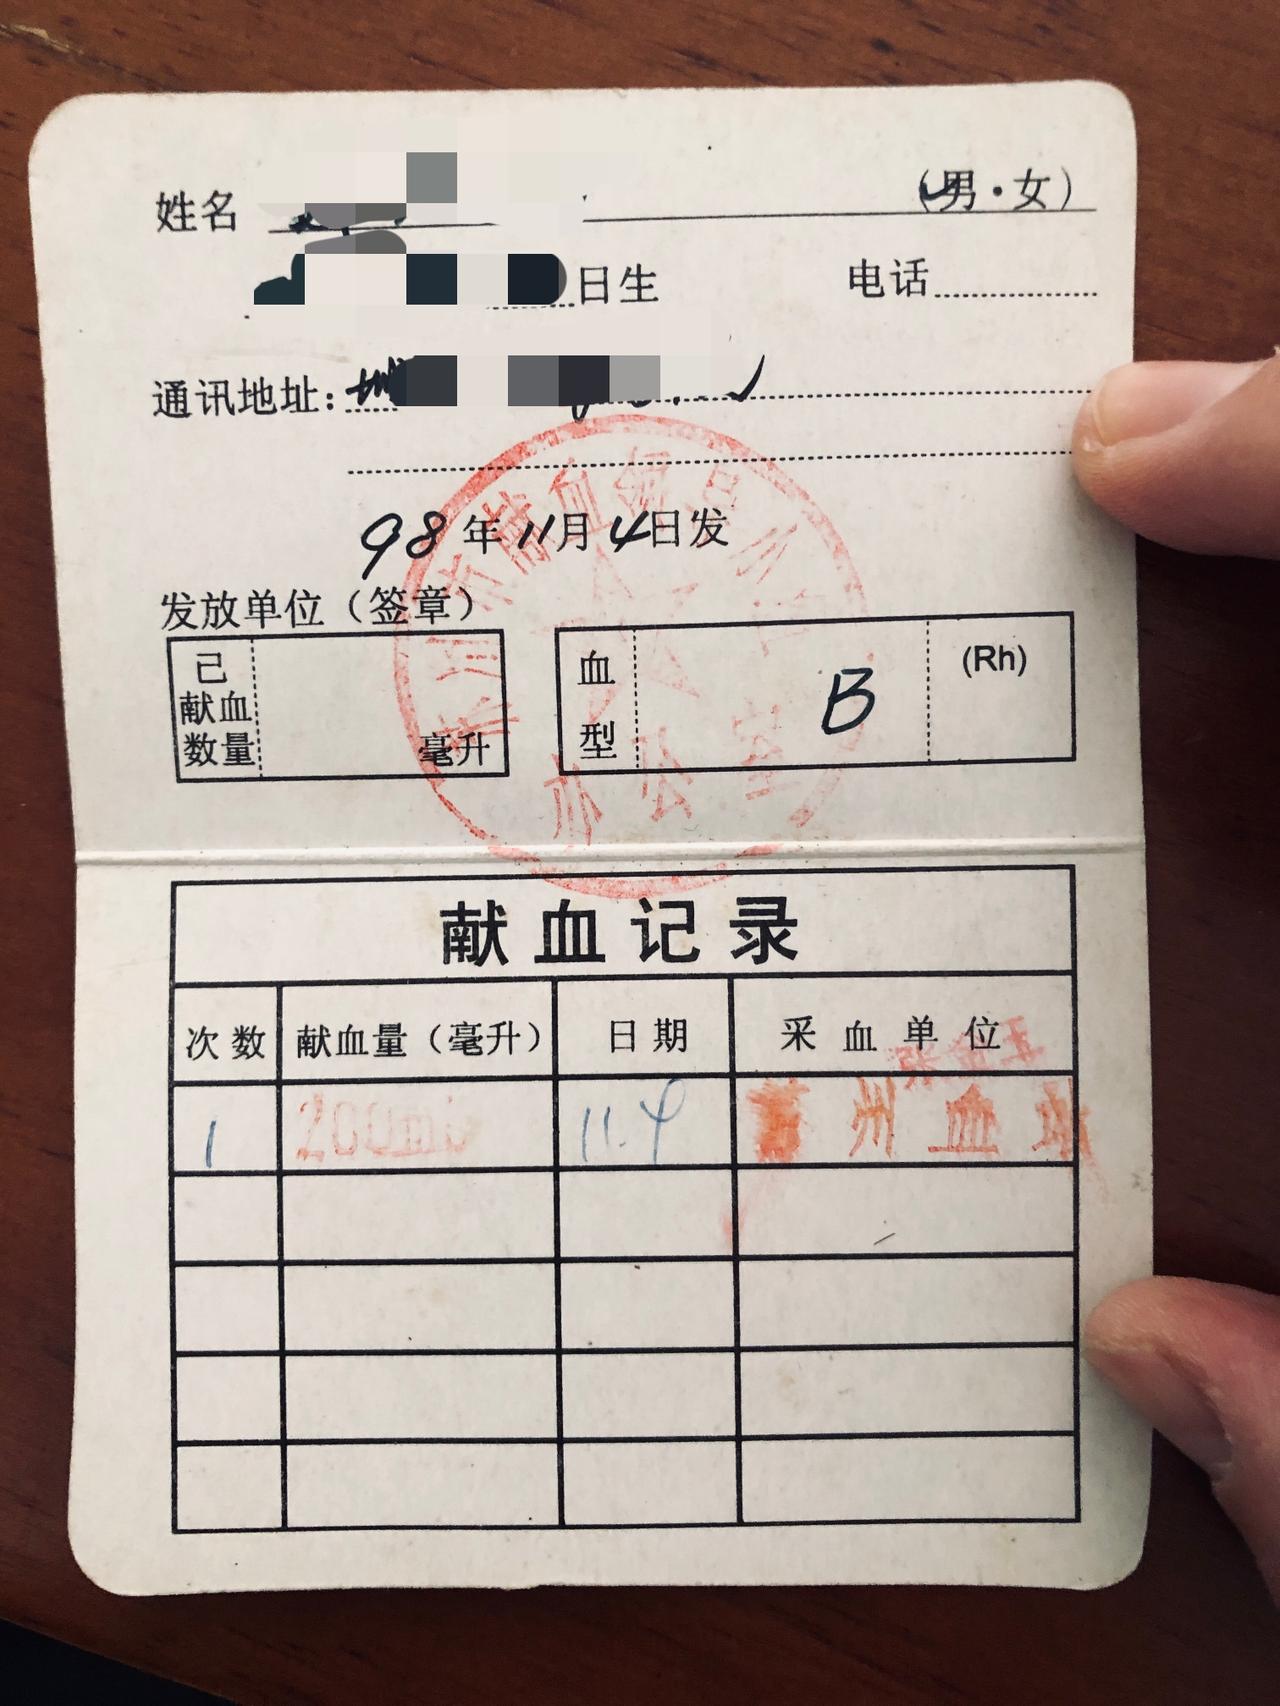 姓名 (男·女)
日生 电话
通讯地址:
98年11月4日发
发放单位（签章）
已献血数量 毫升
血型 B (Rh)
办公室
献血记录
次数 献血量（毫升） 日期 采血单位
1 200ml 11.4 州血站